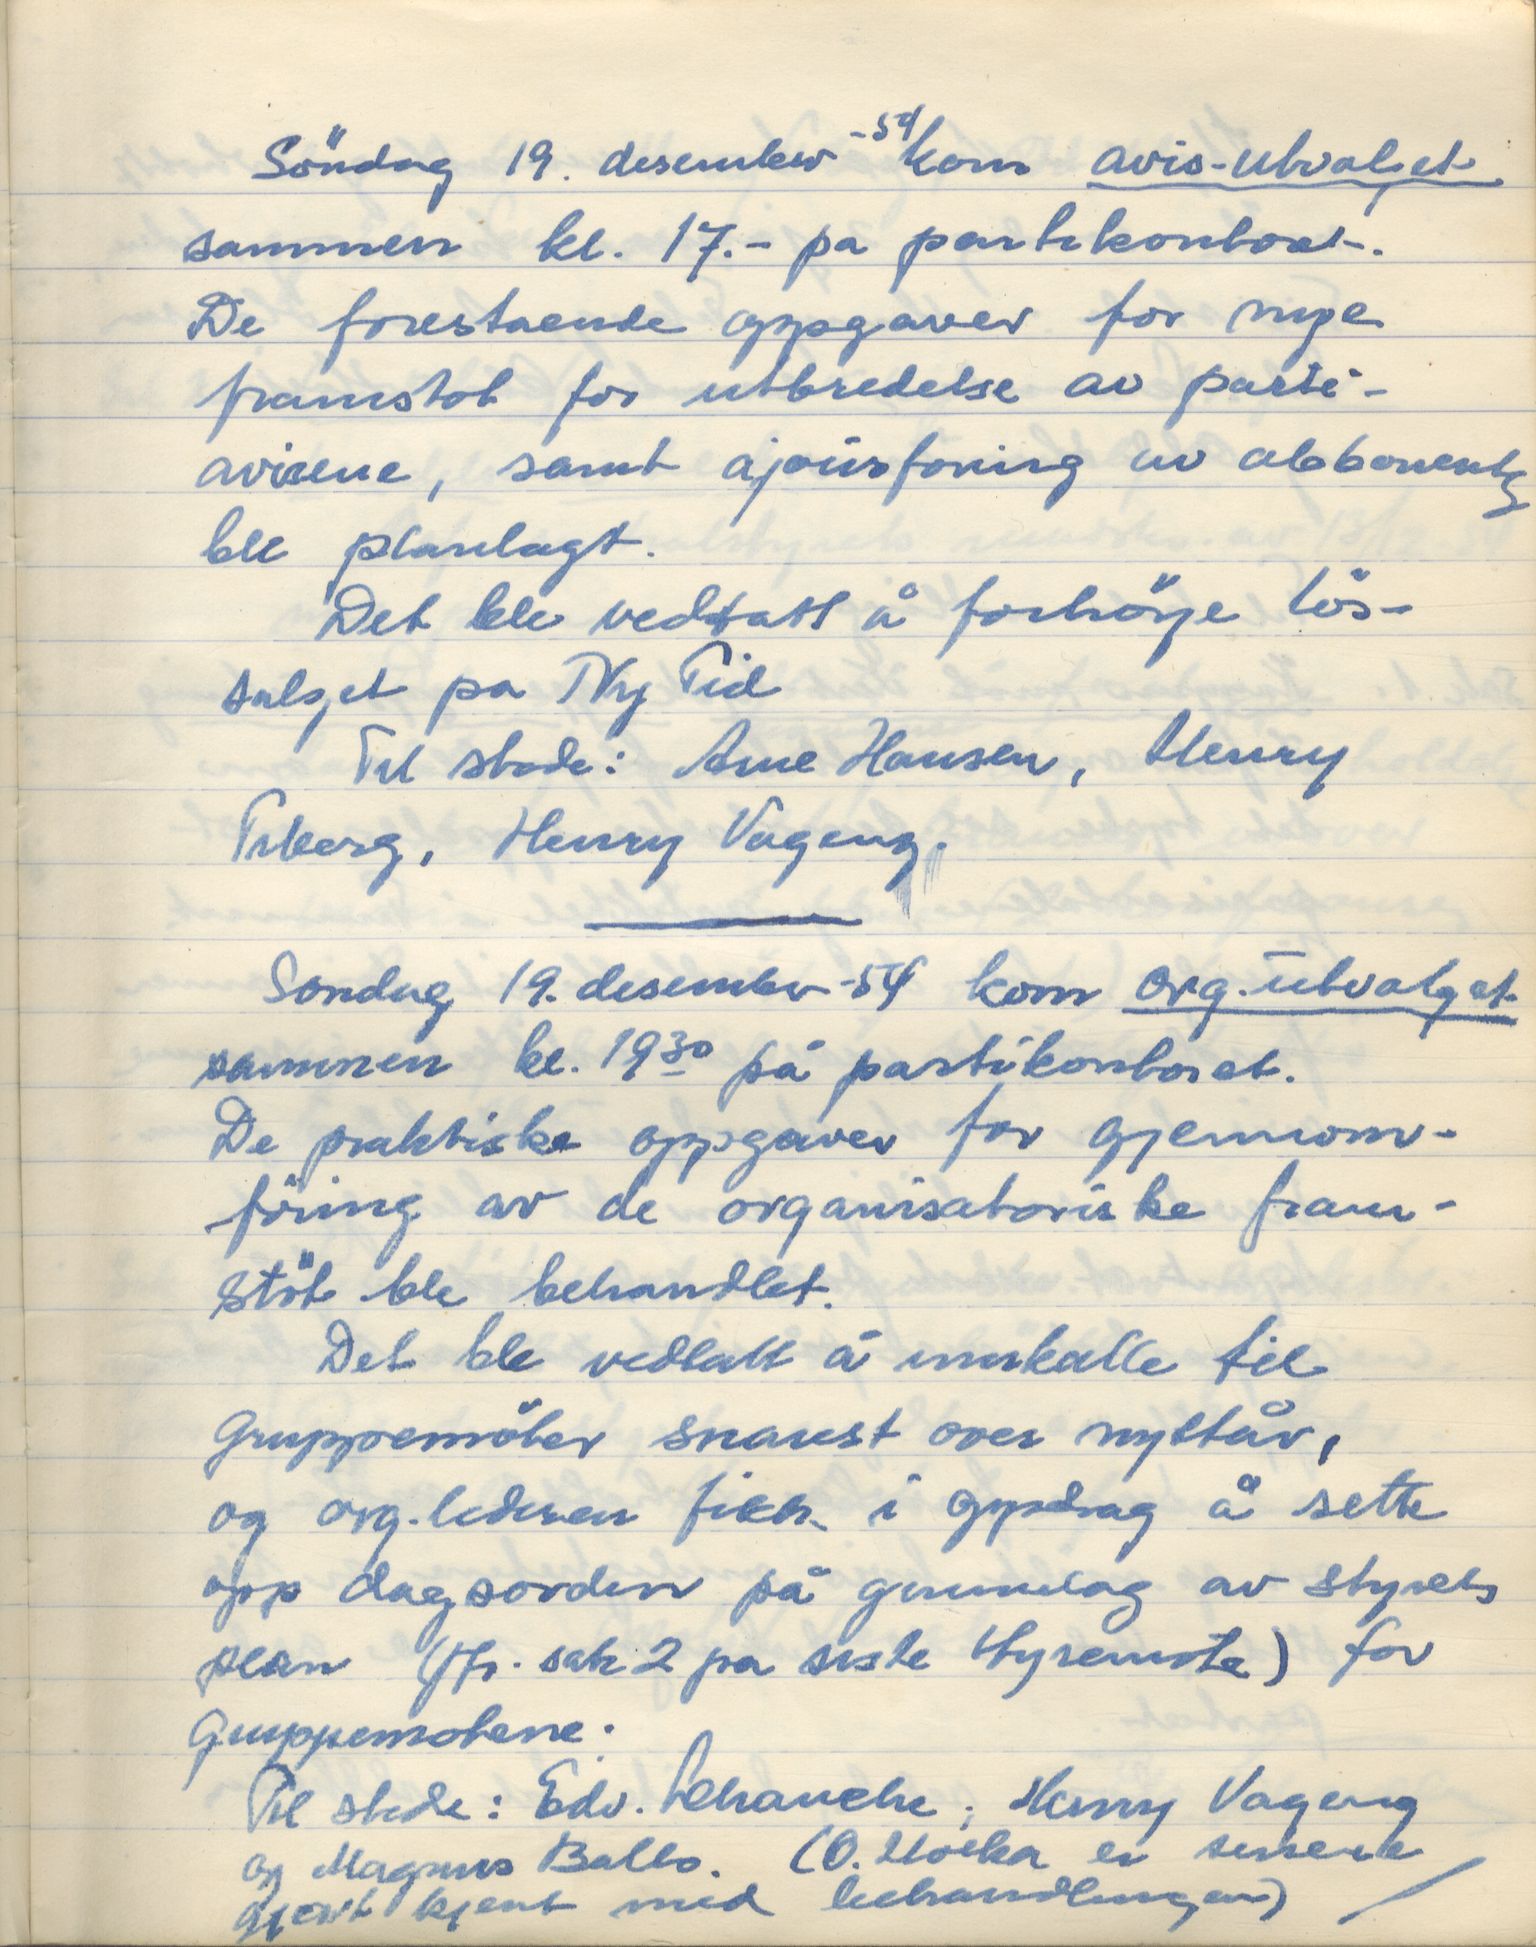 Söndag 19. desember -54 kom avis-utvalget
sammen kl. 17.- pa partikontoret.
De forestaende oppgaver for nye
framstöt for utbredelse av parti-
avisene, samt ajourföring av abbonenter
ble planlagt.
Det ble vedtatt å forhöye lös-
salget pa Ny Tid
Til stede: Arne Hansen, Henry
Henry Vageng.
Sondag 19. desember -54 kom org.utvalget
sammen kl. 19 30 på partikontoret.
De praktiske oppgaver for gjennom-
föring av de organisatoriske fram-
stöt ble behandlet.
Det ble vedtatt å innkalle til
Gruppemöter snarest over nyttår,
og org.lederen fikk i oppdrag å sette
opp dagsorden på grunnlag av styrets
plan (jfr. sak 2 pa siste styremöte) for
Gruppemotene.
Til stede: Edv. Henry Vageng
og Magnus Ballo. (O. er senere
gjort kjent med behandlingen)